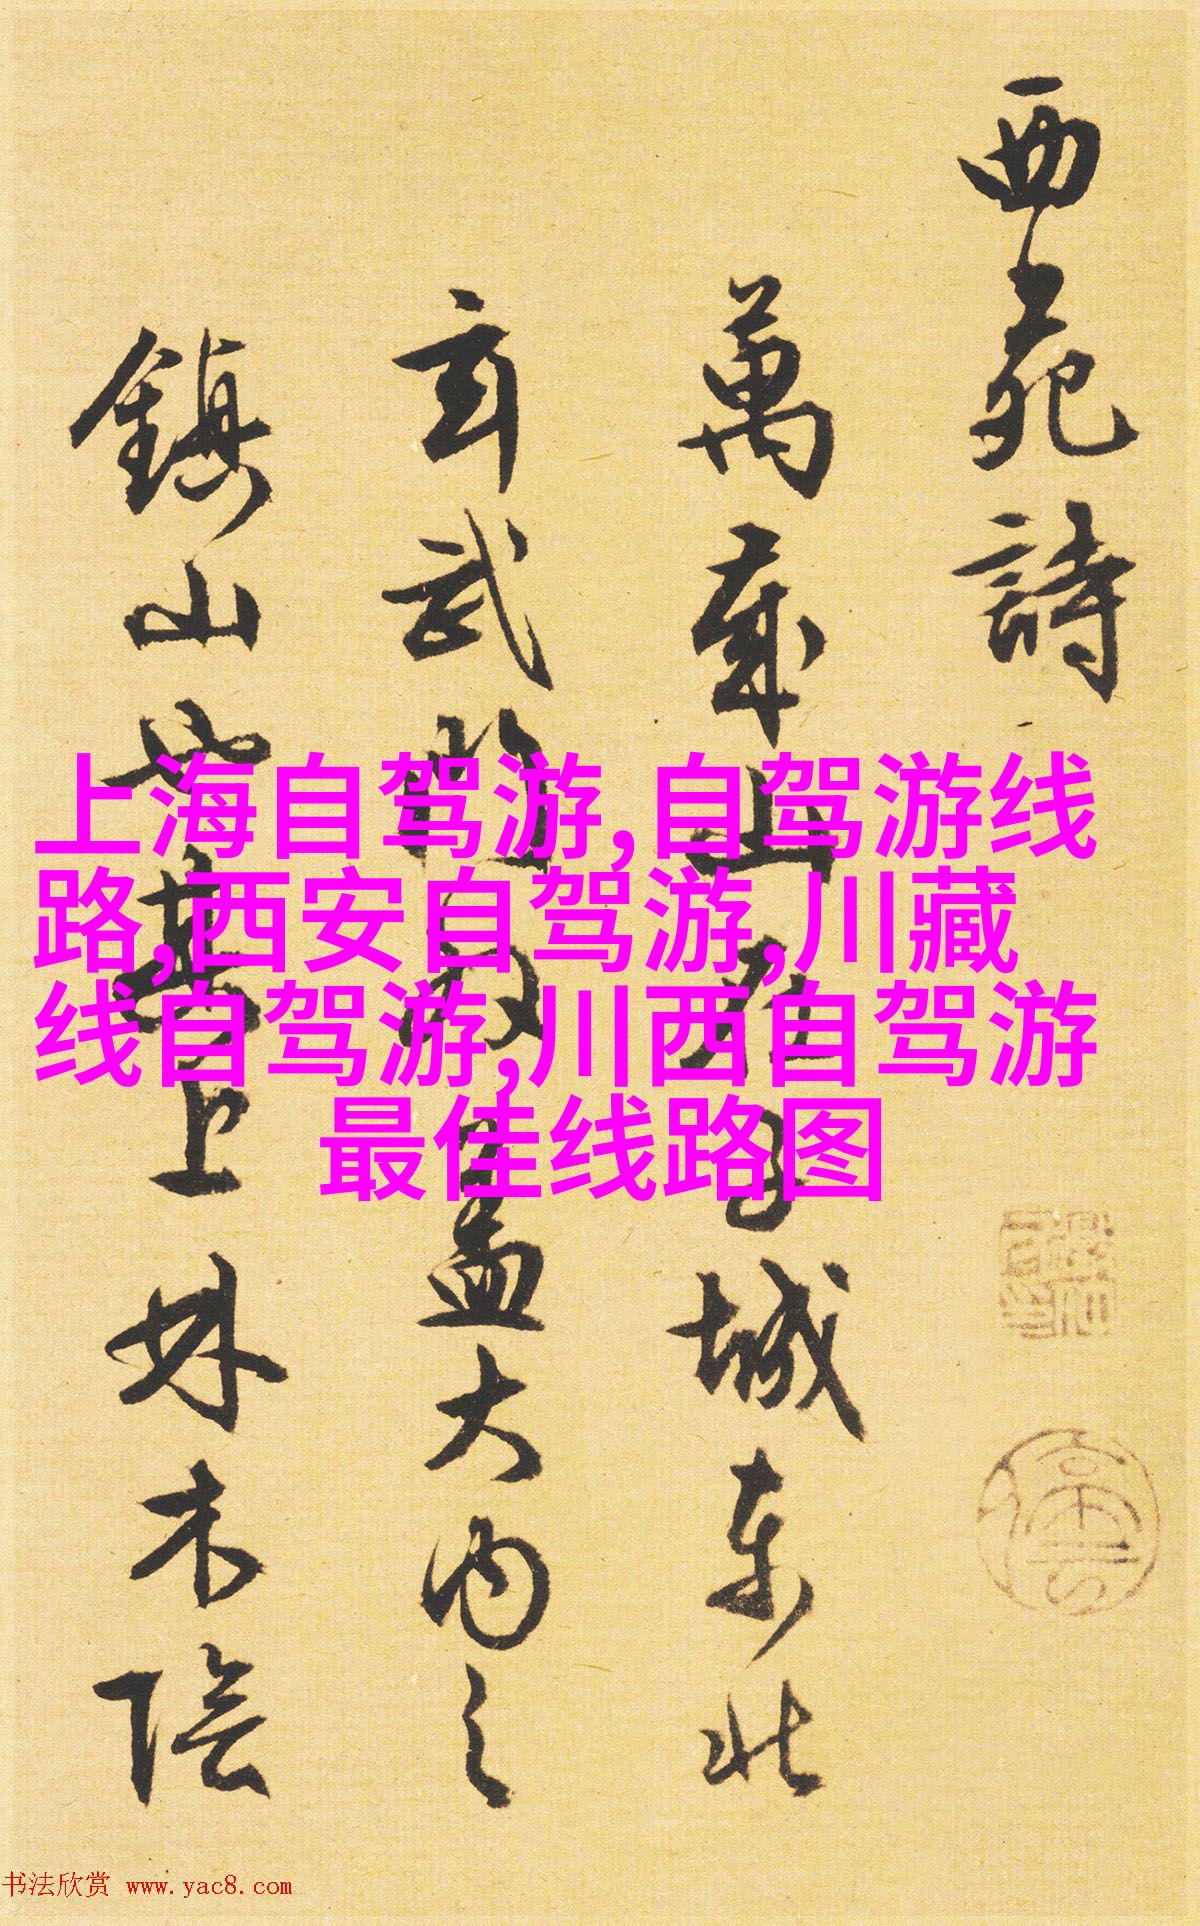 西苑詩
萬歲山在子城東北
玄武門盖大内之
鎮山也其上林木陰
上海自驾游,自驾游线
路,西安自驾游,川藏
线自驾游,川西自驾游
最佳线路图
书法欣赏 www.yac8.com